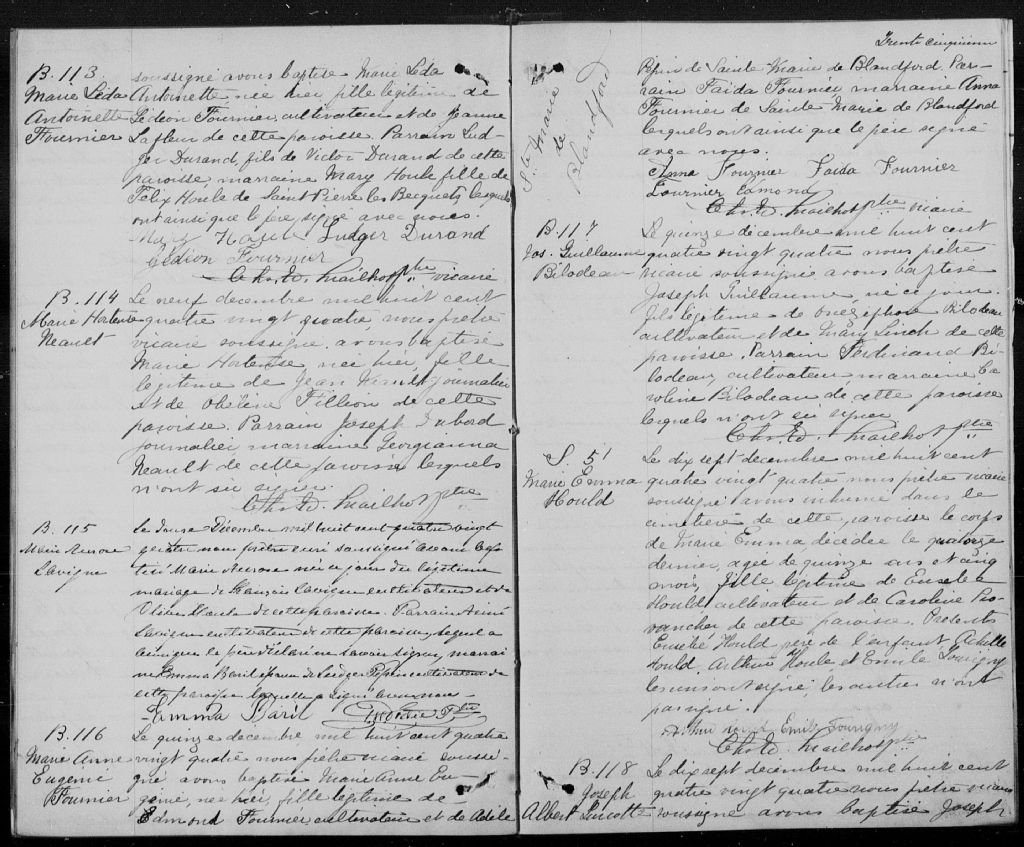 B. 113
Marie Léda
Antoinette
Fournier
soussigné avons baptisé Marie Léda
Antoinette née hier, fille légitime de
Gédéon Fournier, cultivateur et de Jeanne
Lafleur de cette paroisse. Parrain Lud-
ger Durand, fils de Victor Durand de cette
paroisse, marraine Mary Houle fille de
Félix Houle de Saint Pierre les Becquets lesquels
ont ainsi que le père signé avec nous.
Mary Houle Ludger Durand
Gédéon Fournier
Chs. Ed. Mailhot Ptre vicaire
B. 114
Marie Hortense
Neault
Le neuf décembre mil huit cent
quatre vingt quatre, nous prêtre
vicaire soussigné avons baptisé
Marie Hortense, née hier, fille
légitime de Jean Neault journalier
et de Obéline Fillion de cette
paroisse. Parrain Joseph Dubord
journalier marraine Georgianna
Neault de cette paroisse lesquels
n'ont su signer.
Chs Ed. Mailhot Ptre
B. 115
Marie Aurore
Lavigne
Le douze Décembre mil huit cent quatre vingt
quatre nous prêtre curé soussigné avons bap
tisé Marie Aurore née ce jour du légitime
mariage de François Lavigne cultivateur et de
de cette paroisse. Parrain Aimé
Lavigne cultivateur de cette paroisse, lequel a
ainsi que le père déclaré ne savoir signer, marrai
ne Emma Baril épouse de Ludger Pepin cultivateur de
cette paroisse laquelle a signé avec nous
Emma Baril Ptre
B. 116
Marie Anne
Eugénie
Fournier
Le quinze décembre mil huit cent quatre
vingt quatre nous prêtre vicaire soussi-
gné avons baptisé Marie Anne Eu-
génie, née hier, fille légitime de
Edmond Fournier, cultivateur et de Adèle
Trente cinquième
Ste Marie
de
Blandford
Pepin de Sainte Marie de Blandford. Par-
rain Faida Fournier marraine Anna
Fournier de Sainte Marie de Blandford
lesquels ont ainsi que le père signé
avec nous.
Anna Fournier Faida Fournier
Fournier Edmond
Chs. Ed. Mailhot Ptre vicaire
B. 117
Jos. Guillaume
Bilodeau
Le quinze décembre mil huit cent
quatre vingt quatre nous prêtre
vicaire soussigné avons baptisé
Joseph Guillaume, né ce jour
fils légitime de Onéziphore Bilodeau
cultivateur et de Mary Linch de cette
paroisse. Parrain Ferdinand Bi-
lodeau, cultivateur, marraine Ca-
roline Bilodeau de cette paroisse
lesquels n'ont su signer
Chs. Ed. Mailhot Ptre
S. 51
Marie Emma
Hould
Le dix sept décembre mil huit cent
quatre vingt quatre nous prêtre vicaire
soussigné avons inhumé dans le
cimetière de cette paroisse le corps
de Marie Emma, décédée le quatorze
dernier, agée de quinze ans et cinq
mois, fille légitime de Eusèbe
Hould, cultivateur et de Caroline Pro-
vancher de cette paroisse. Présents
Eusèbe Hould, père de l'enfant, Achille
Hould, Arthur Houle et Emile Fourigny
les uns ont signé, les autres n'ont
pas signé.
Arthur Hould Emile Fourigny
Chs Ed. Mailhot Ptre
B. 118
Joseph
Albert Turcotte
Le dix sept décembre mil huit cent
quatre vingt quatre nous prêtre vicaire
soussigné avons baptisé Joseph